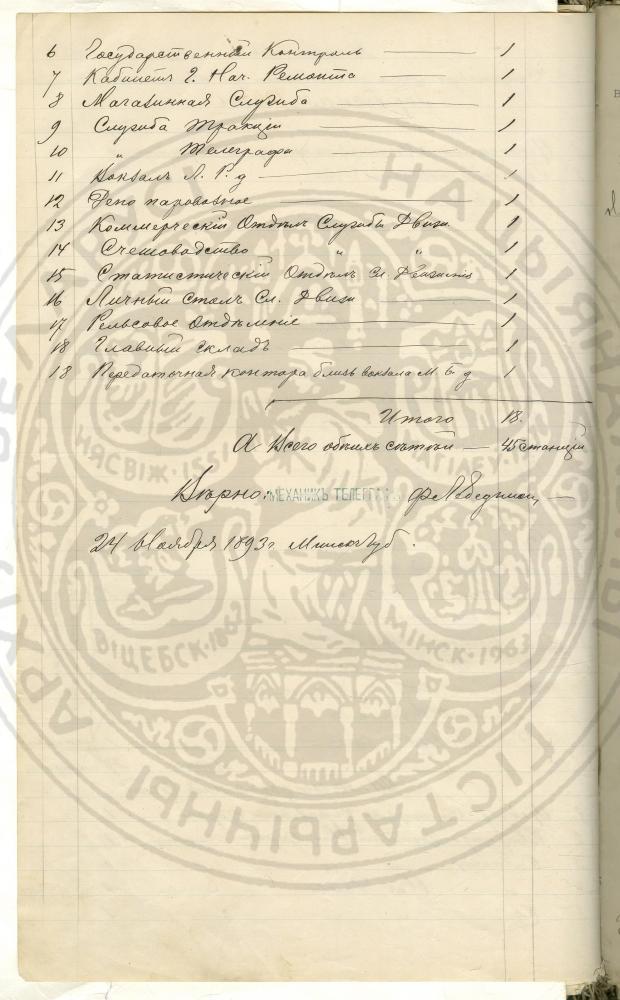 6 Государственный Контроль 1
7 Кабинетъ г. Нач. Ремонта 1
8 Магазинная Служба 1
9 Служба Тракціи 1
10 " Телеграфа 1
11 Вокзалъ Л. Р. д 1
12 Депо паровозное 1
13 Коммерческій Отдѣлъ Службы Движ. 1
14 Счетоводство " " 1
15 Статистическій Отдѣлъ Сл. Движенія 1
16 Личный столъ Сл. Движ 1
17 Рельсовое Отдѣленіе 1
18 Главный складъ 1
18 Передаточная контора близь вокзала М. Б. д 1
Итого 18.
А Всего обѣихъ сѣтей — 45 станцій
Вѣрно: МЕХАНИКЪ ТЕЛЕГРАФА
24 Ноября 1893 г. Минскъ губ.
НЯСВІЖ·1551
ВІЦЕБСК·1862
МІНСК·1963
АРХІЎ
ГІСТАРЫЧНЫ
НАЦЫЯНАЛЬНЫ
БЕЛАРУСІ